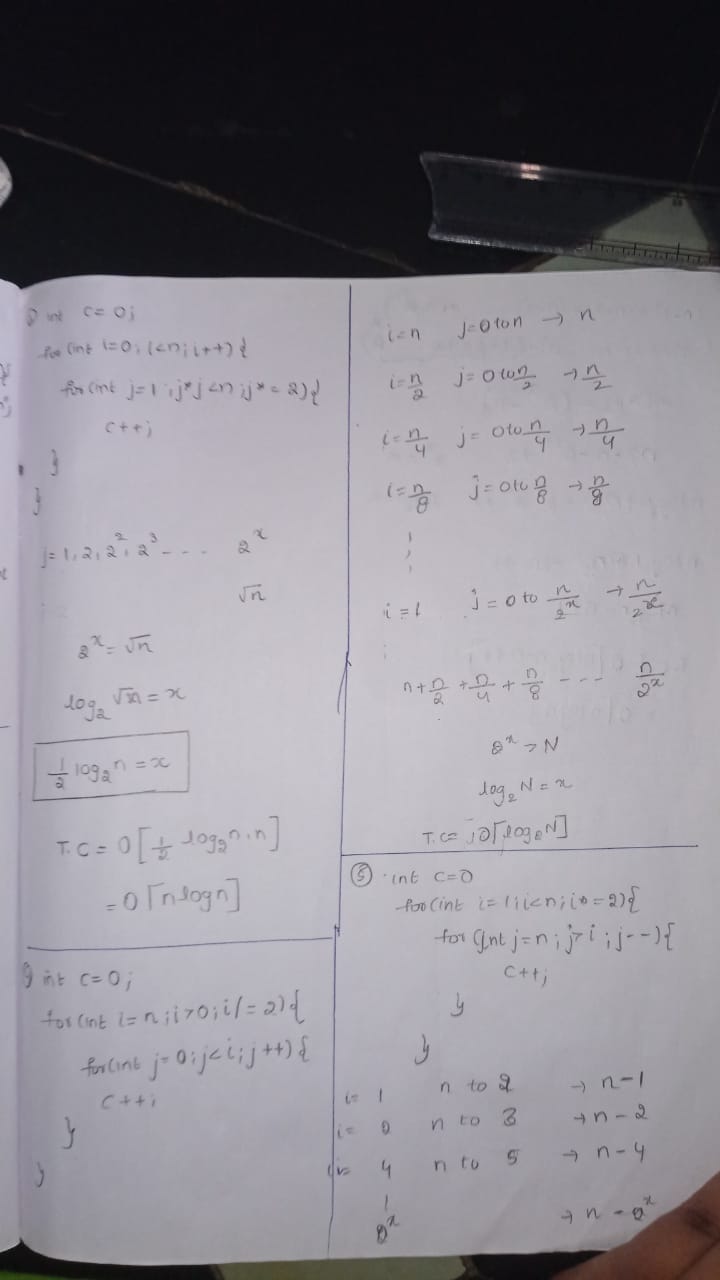 int c=0;
for (int i=0; i<n; i++) {
for (int j=1; j*j<n; j*=2) {
c++;
}
}
j= 1, 2, 2², 2³ - - - 2ˣ
√n
2ˣ = √n
log₂ √n = x
½ log₂ n = x
T.C = O[½ log₂n.n]
= O[nlogn]
int c=0;
for (int i=n; i>0; i/=2) {
for (int j=0; j<i; j++) {
c++;
}
}
i=n j=0 to n → n
i=n/2 j=0 to n/2 → n/2
i=n/4 j=0 to n/4 → n/4
i=n/8 j=0 to n/8 → n/8
i=1 j=0 to n/2ˣ → n/2ˣ
n+n/2+n/4+n/8 - - - n/2ˣ
2ˣ → N
log₂ N = x
T.C= O[log₂N]
⑤ int c=0
for (int i=1; i<n; i*=2) {
for (int j=n; j>i; j--) {
c++;
}
}
i= 1 n to 2 → n-1
i= 2 n to 3 → n-2
i= 4 n to 5 → n-4
2ˣ → n-2ˣ